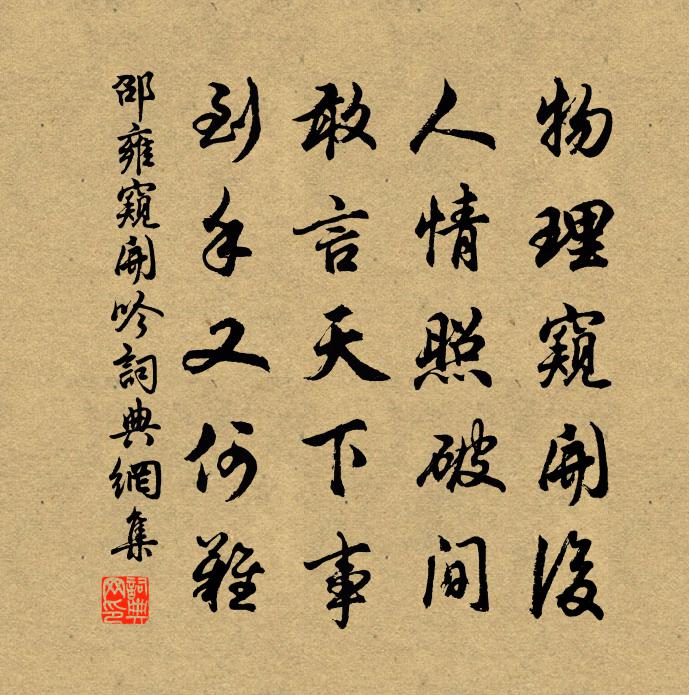 物理窺開後
人情照破間
敢言天下事
到手又何難
邵雍窺開吟詞典網集
詞典网印